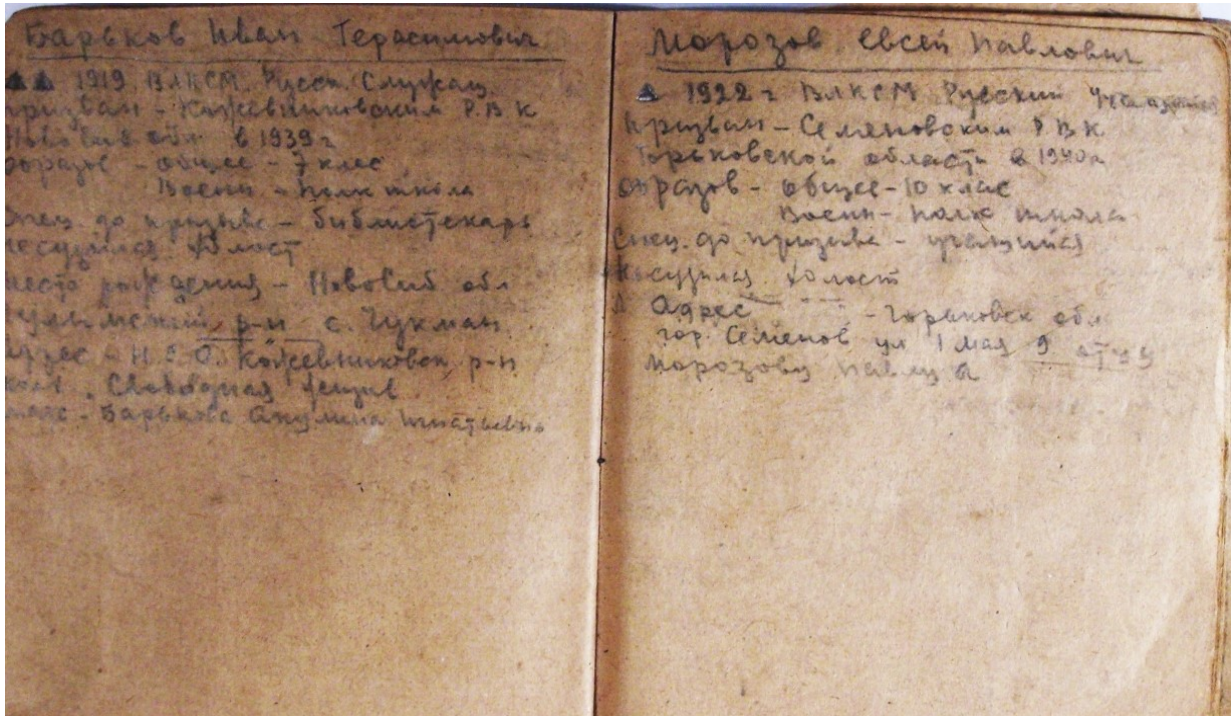 Барьков Иван Герасимович
1919 ВЛКСМ Русск. Служащ
призван - Кожевниковским Р В К
Новосиб обл в 1939 г
образов - общее - 7 клас
Военн - полк школа
Спец. до призыва - библистекарь
несудился холост
место рождения - Новосиб обл
р-н с. Чукман
адрес - Н.S.О. Кожевниковск р-н
Свободная
Барькова Акулина Игнатьевна
Морозов Евсей Павлович
1922 г ВЛКСМ Русский
призван - Семеновским Р В К
Горьковской области в 1940 г
образов - общее - 10 клас
Военн - полк школа
Спец. до призыва - учащийся
Несудился холост
Адрес - Горьковск обл.
гор. Семенов ул 1 мая 9 отцу
Морозову Павлу